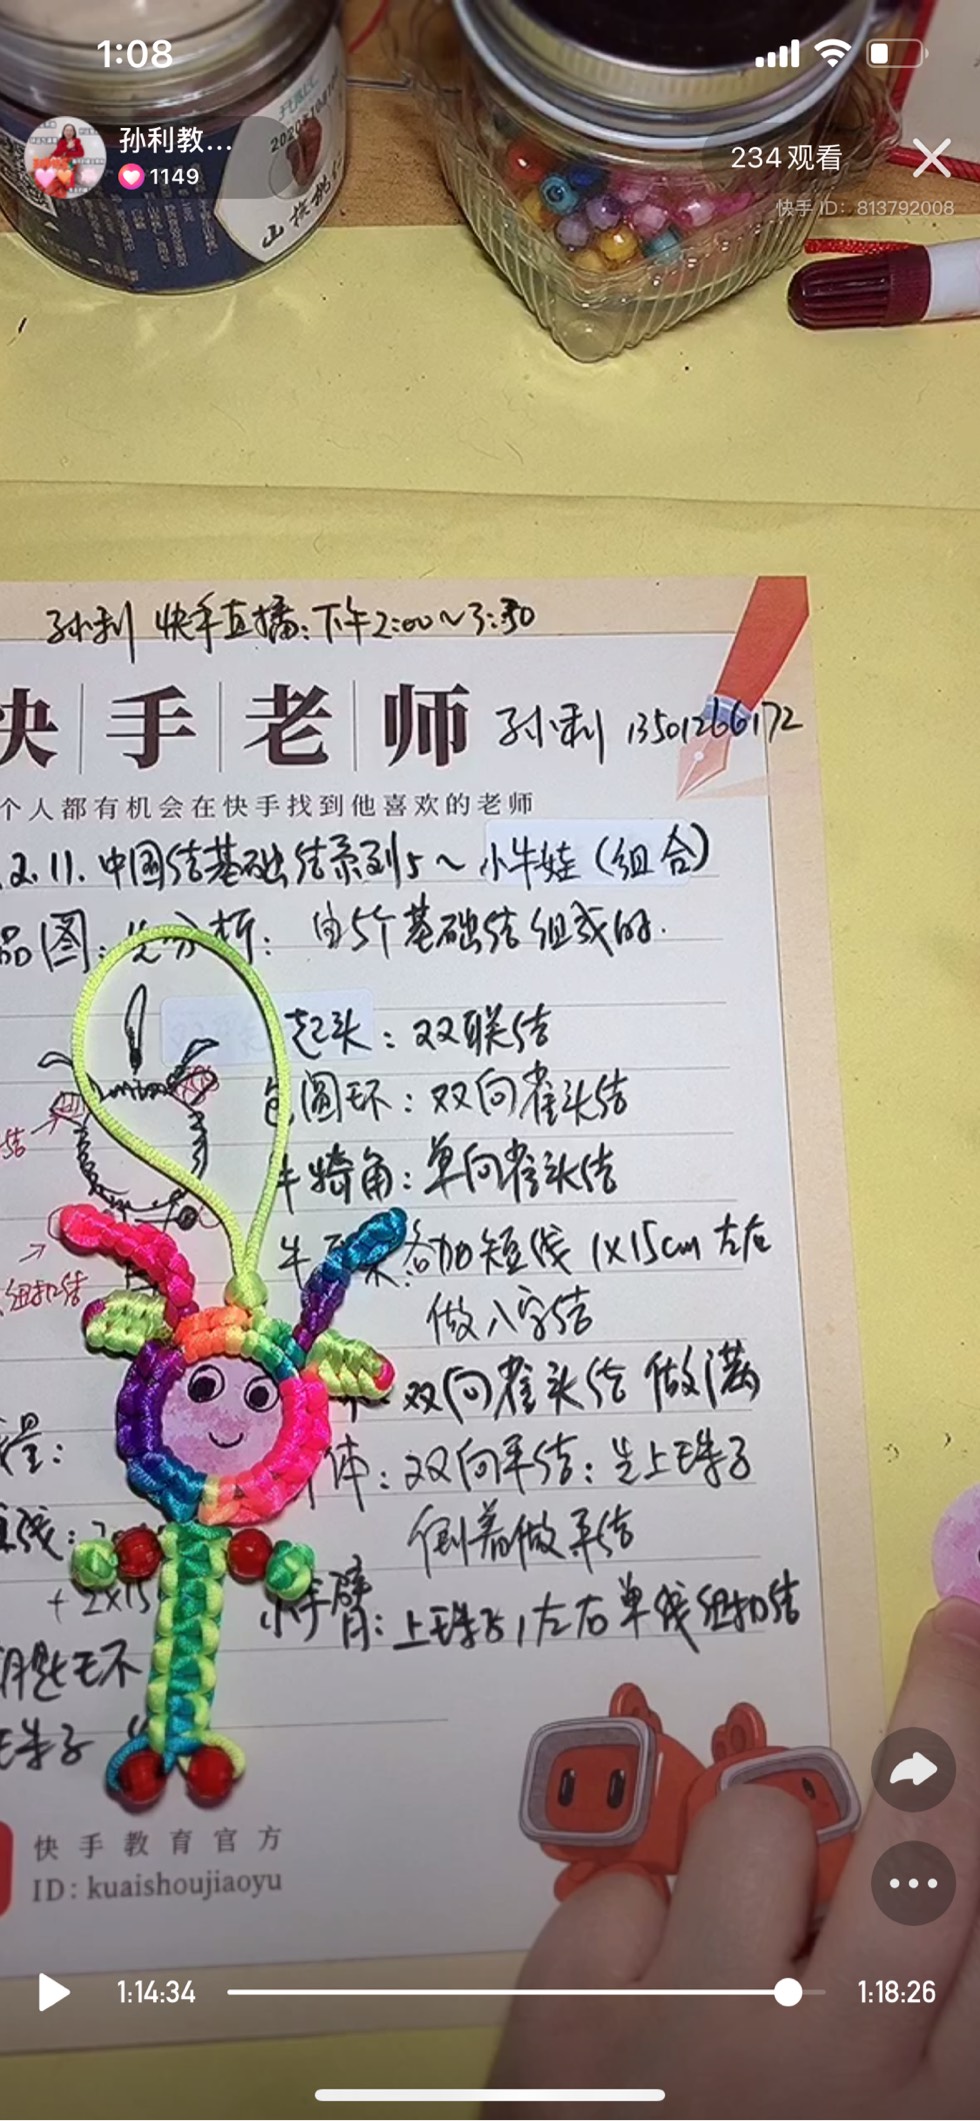 1:08
孙利教...
1149
234观看
快手 ID: 813792008
2020年10月
山楂
孙利 快手直播:下午2:00~3:30
快手老师 孙利 13501266172
个人都有机会在快手找到他喜欢的老师
.2.11.中国结基础结系列5~小牛娃(组合)
品图:先分析:由5个基础结组成的.
起头:双联结
包圆环:双向雀头结
结
牛犄角:单向雀头结
牛 各加短线 1x15cm 左右
纽扣结
做八字结
双向雀头结 做满
量:
体:双向平结:先上珠子
线:2
倒着做平结
+2x15
小手臂:上珠子,左右单线纽扣结
钥匙环
珠子
快手教育官方
ID: kuaishoujiaoyu
1:14:34
1:18:26